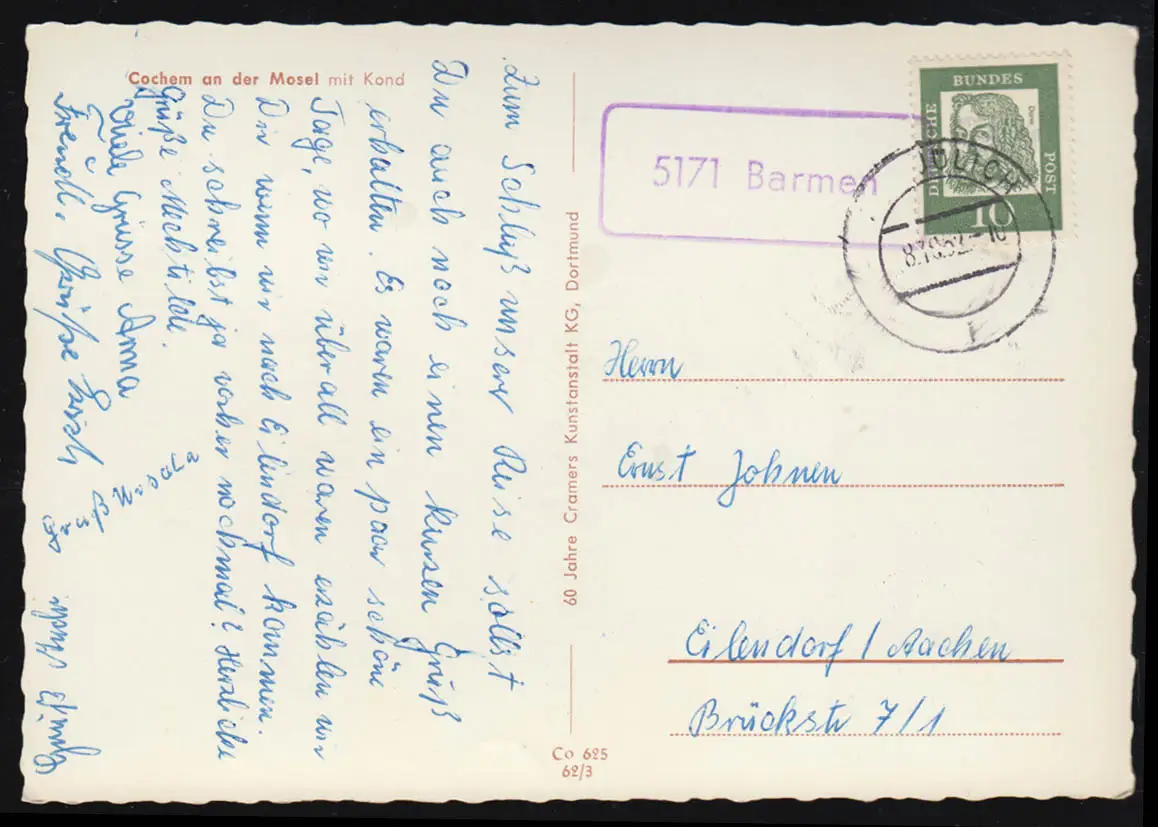 Cochem an der Mosel mit Kond
Zum Schluß unser Reise sollst
Du auch noch einen kurzen Gruß
erhalten. Es waren ein paar schöne
Tage, wo wir überall waren erzählen wir
Dir wenn wir nach Eilendorf kommen.
Du schreibst ja vorher nochmal? Herzliche
Grüße Mechtilde.
Viele Grüsse Anna
Freundl. Grüße
60 Jahre Cramers Kunstanstalt KG, Dortmund
Co 625
62/3
5171 Barmen
DEUTSCHE BUNDES POST
Dürer
10
JÜLICH
Herrn
Ernst Johnen
Eilendorf / Aachen
Brückstr 7/1